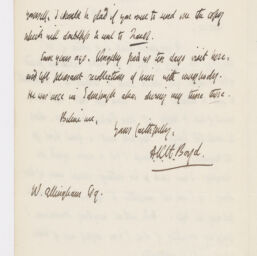 yourself. I should be glad if you were to send me the copy
which will doubtless be sent to Travel.
Some years ago, Kingsley paid us ten days visit here,
and left pleasant recollections of himself with everybody.
He was once in Edinburgh also, during my time there.
Believe me,
Yours faithfully,
A.K.H. Boyd.
W. Allingham Esq.